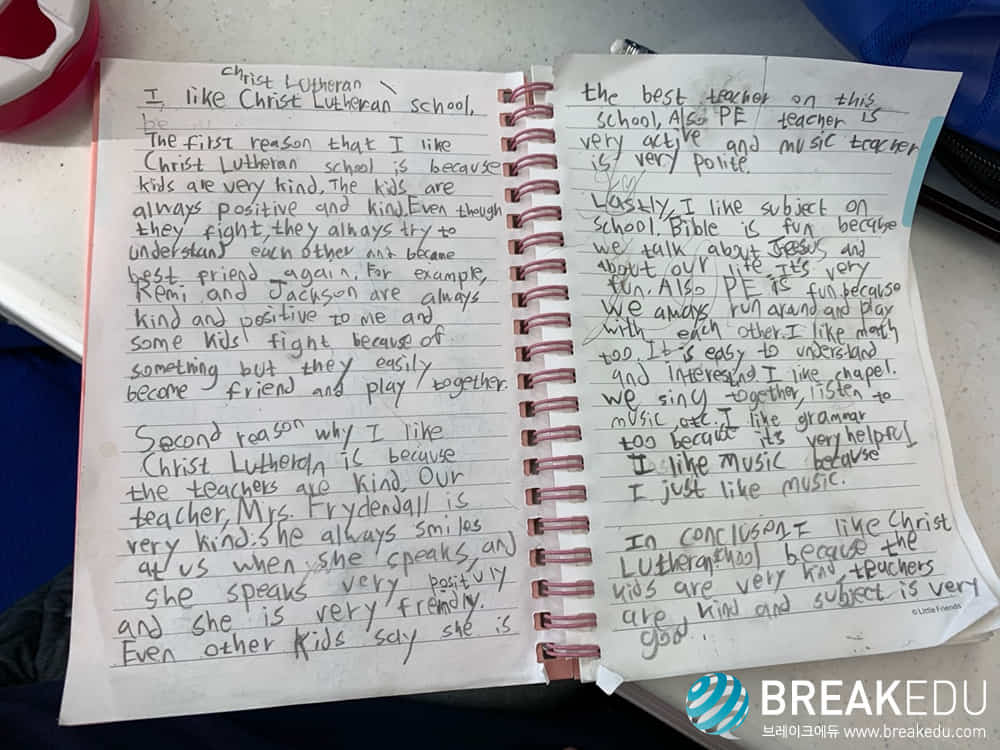 Christ Lutheran
I, like Christ Lutheran school,
be
The first reason that I like
Christ Lutheran school is because
kids are very kind. The kids are
always positive and kind. Even though
they fight, they always try to
understand each other and became
best friend again. For example,
Remi and Jackson are always
kind and positive to me and
some kids fight because of
something but they easily
become friend and play together.
Second reason why I like
Christ Lutheran is because
the teachers are kind. Our
teacher, Mrs. Frydendall is
very kind. she always smiles
at us when she speaks, and
she speaks very posituly
and she is very freindly.
Even other kids say she is
the best teacher on this
school, Also PE teacher is
very active and music teacher
is very polite.
Lastly, I like subject on
school. Bible is fun because
we talk about Jesus and
about our life. It's very
fun. Also PE is fun. because
we always run around and play
with each other. I like math
too. It is easy to understand
and interestind. I like chapel.
we sing together, listen to
music, etc. I like grammar
too because it's very helpful
I like music because
I just like music.
In conclusen, I like Christ
Lutheran school because the
kids are very kind, teachers
are kind and subject is very
good.
© Little Friends
BREAKEDU
브레이크에듀 www.breakedu.com